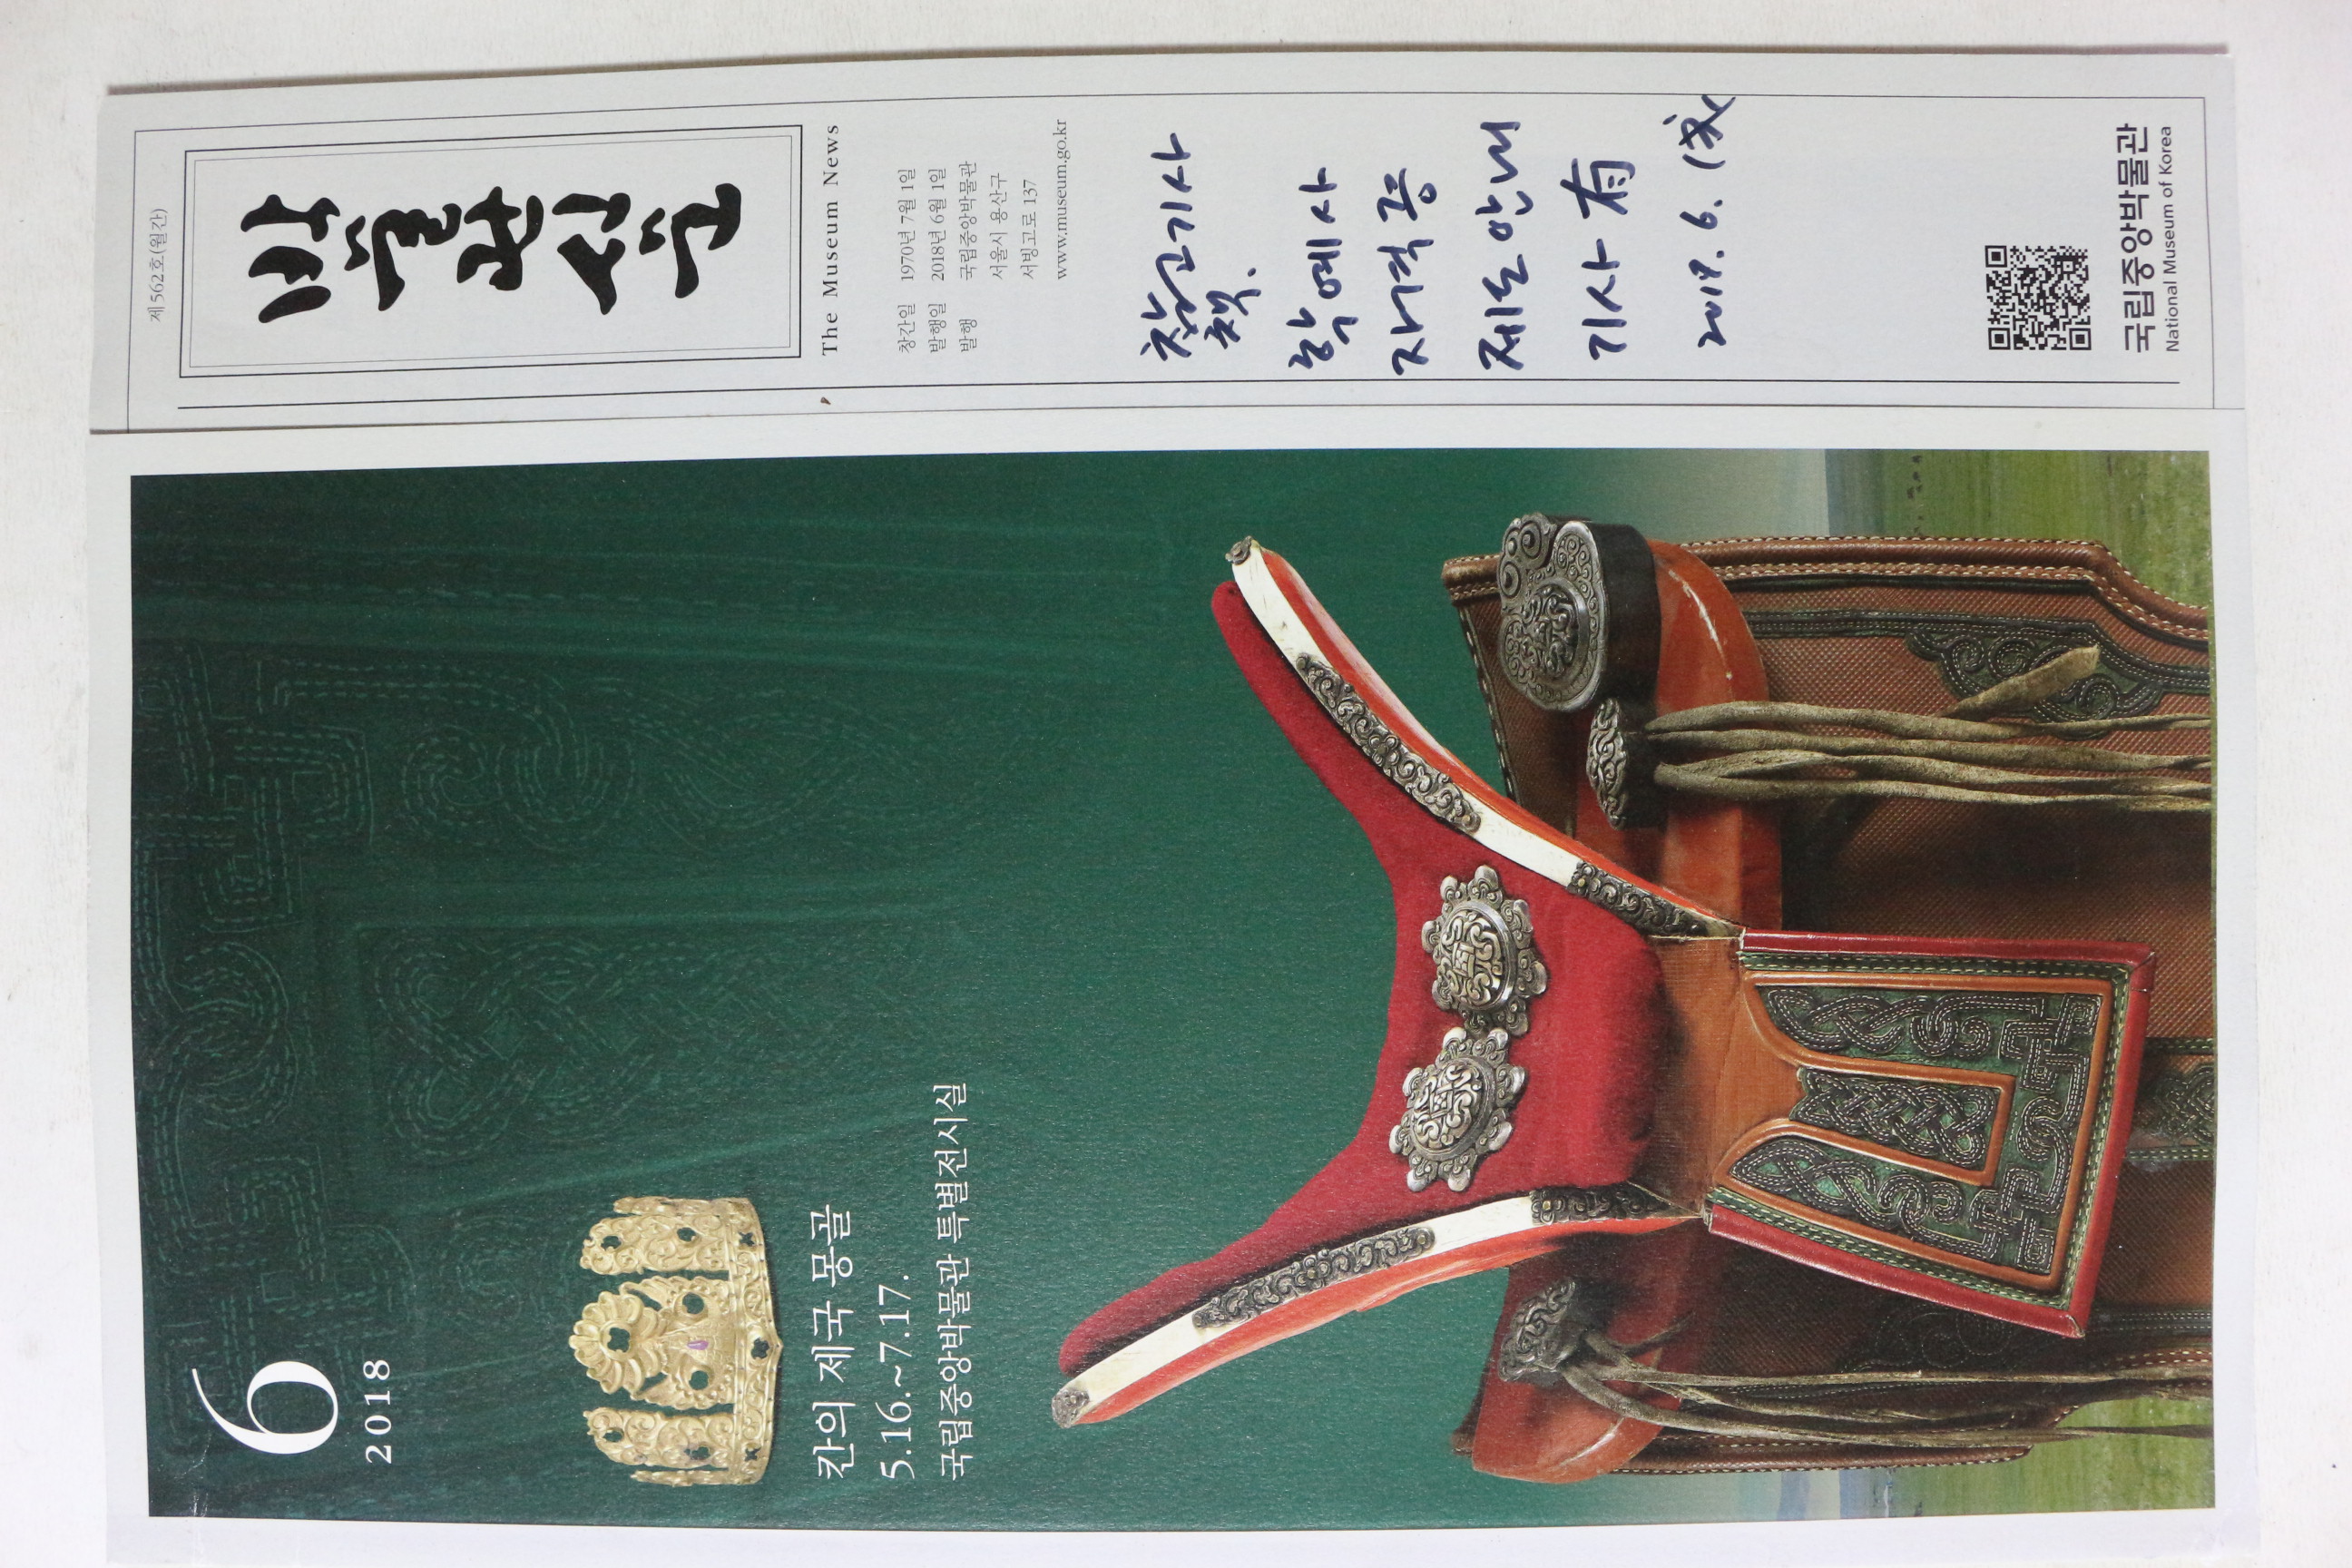 제562호(월간)
박물관신문
The Museum News
창간일 1970년 7월 1일
발행일 2018년 6월 1일
발행 국립중앙박물관
서울시 용산구
서빙고로 137
www.museum.go.kr
참고기사
책.
학예사
자격증
제도안내
기사 有
6.
국립중앙박물관
National Museum of Korea
6
2018
칸의 제국 몽골
5.16.~7.17.
국립중앙박물관 특별전시실